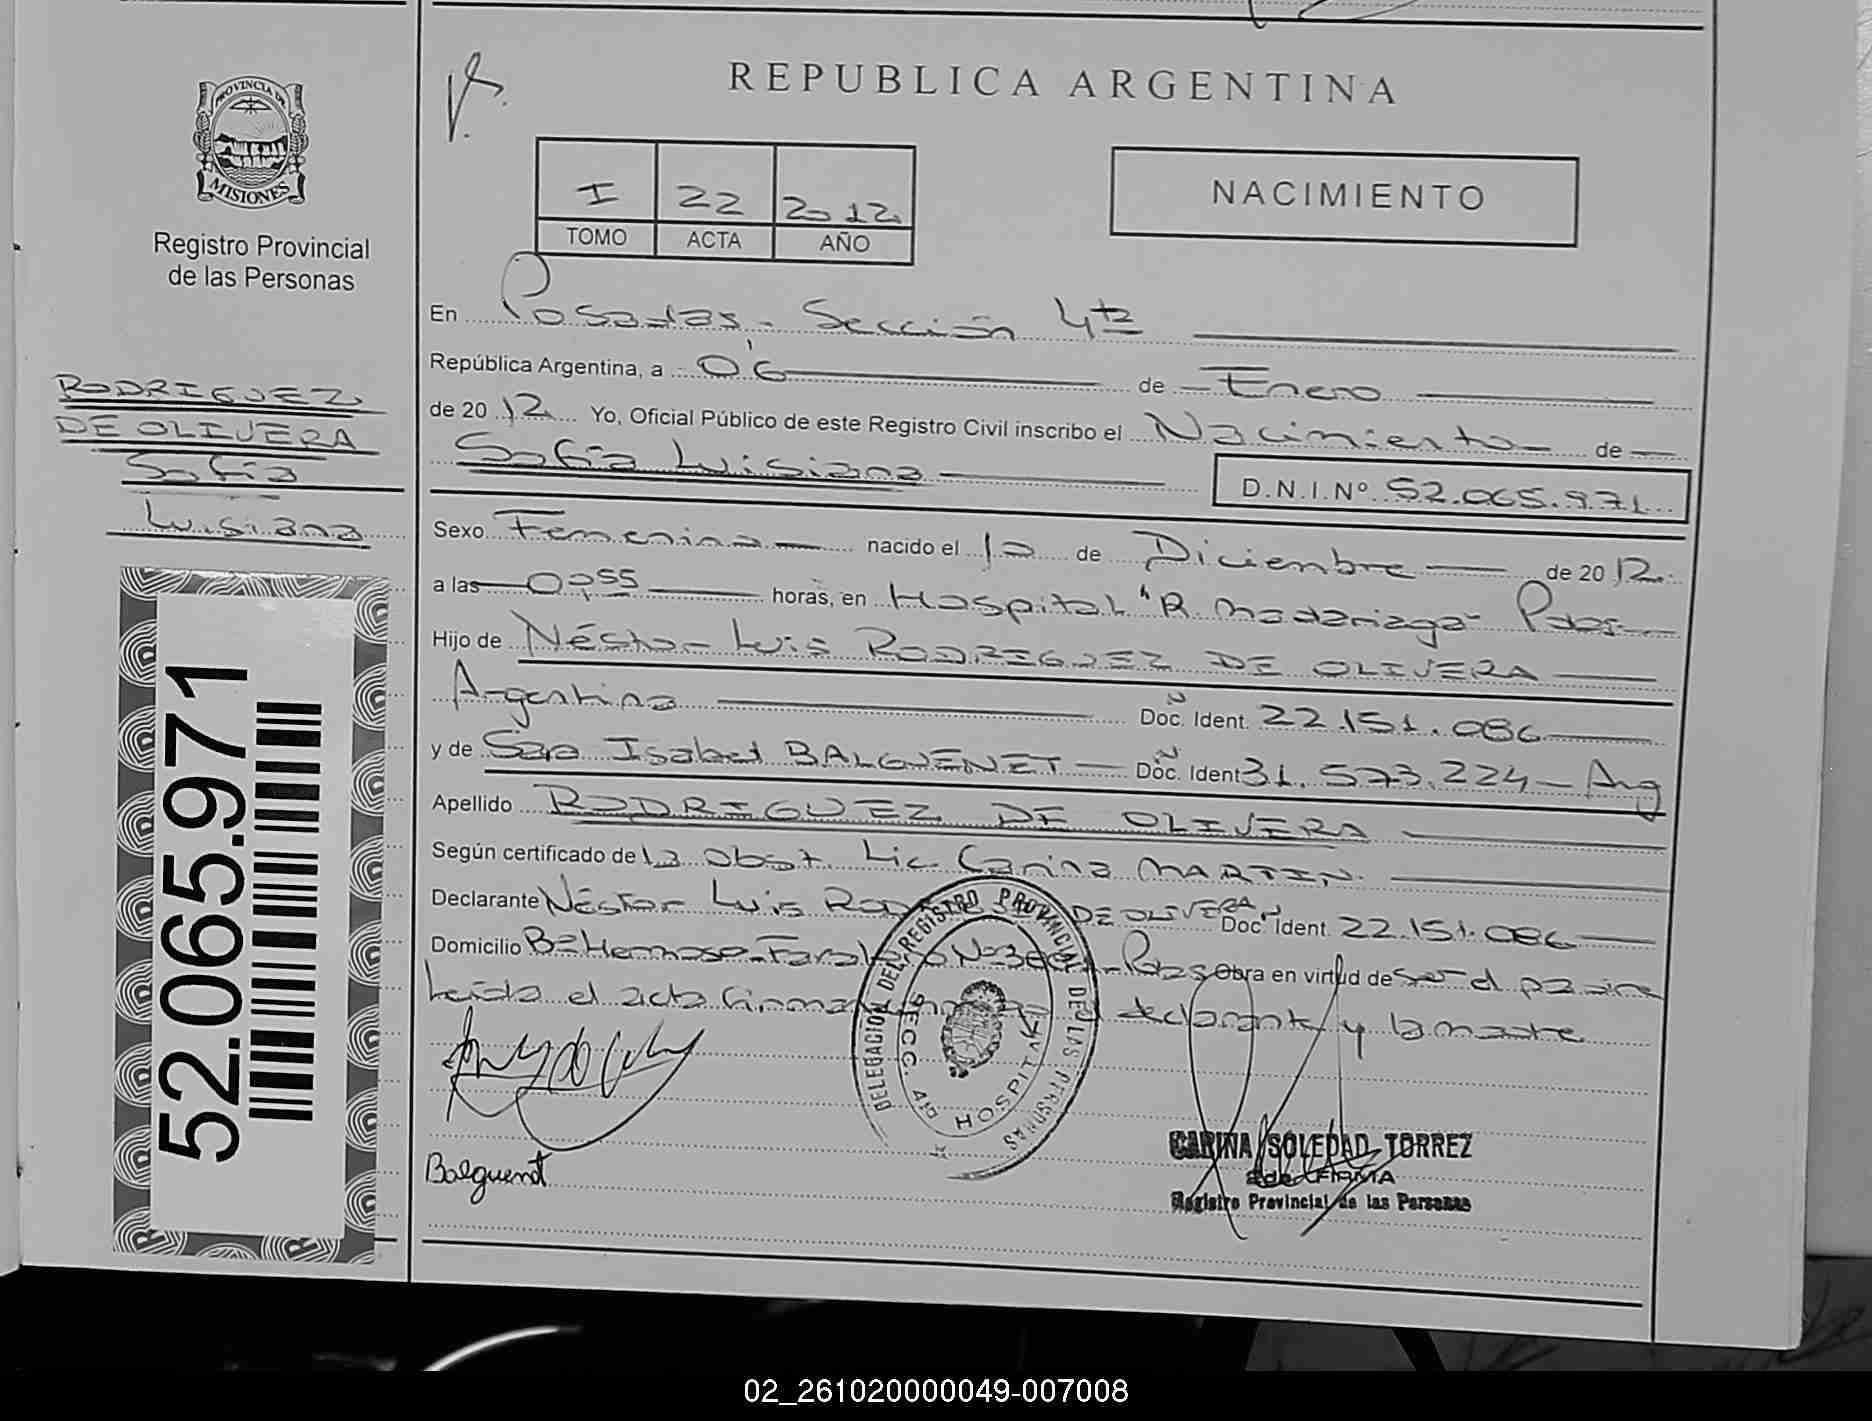 REPUBLICA ARGENTINA
PROVINCIA DE
MISIONES
Registro Provincial
de las Personas
I 22 2012
TOMO ACTA AÑO
NACIMIENTO
RODRIGUEZ
DE OLIVERA
Sofía
Luisiana
52.065.971
En Posadas - Sección 4ta
República Argentina, a 06 de Enero
de 2012 Yo, Oficial Público de este Registro Civil inscribo el Nacimiento de
Sofía Luisiana D.N.I.Nº 52.065.971
Sexo Femenina nacido el de Diciembre de 2012
a las horas, en Hospital "R. Madariaga" Pdas
Hijo de Néstor Luis RODRIGUEZ DE OLIVERA
Argentina Doc. Ident. 22.151.086
y de Sara Isabel BALGUENET Doc. Ident 31.573.224 - Arg
Apellido RODRIGUEZ DE OLIVERA
Según certificado de la Obst. Lic. Carina MARTIN
Declarante Néstor Luis DE OLIVERA Doc. Ident. 22.151.086
Domicilio Bº Hermoso Pdas Obra en virtud de ser el padre
Leída el acta el declarante y la madre
DELEGACION DEL REGISTRO PROVINCIAL DE LAS PERSONAS
SECC. 4ta HOSPITAL
Balguenet
CARINA SOLEDAD TORREZ
FIRMA
Registro Provincial de las Personas
02_261020000049-007008